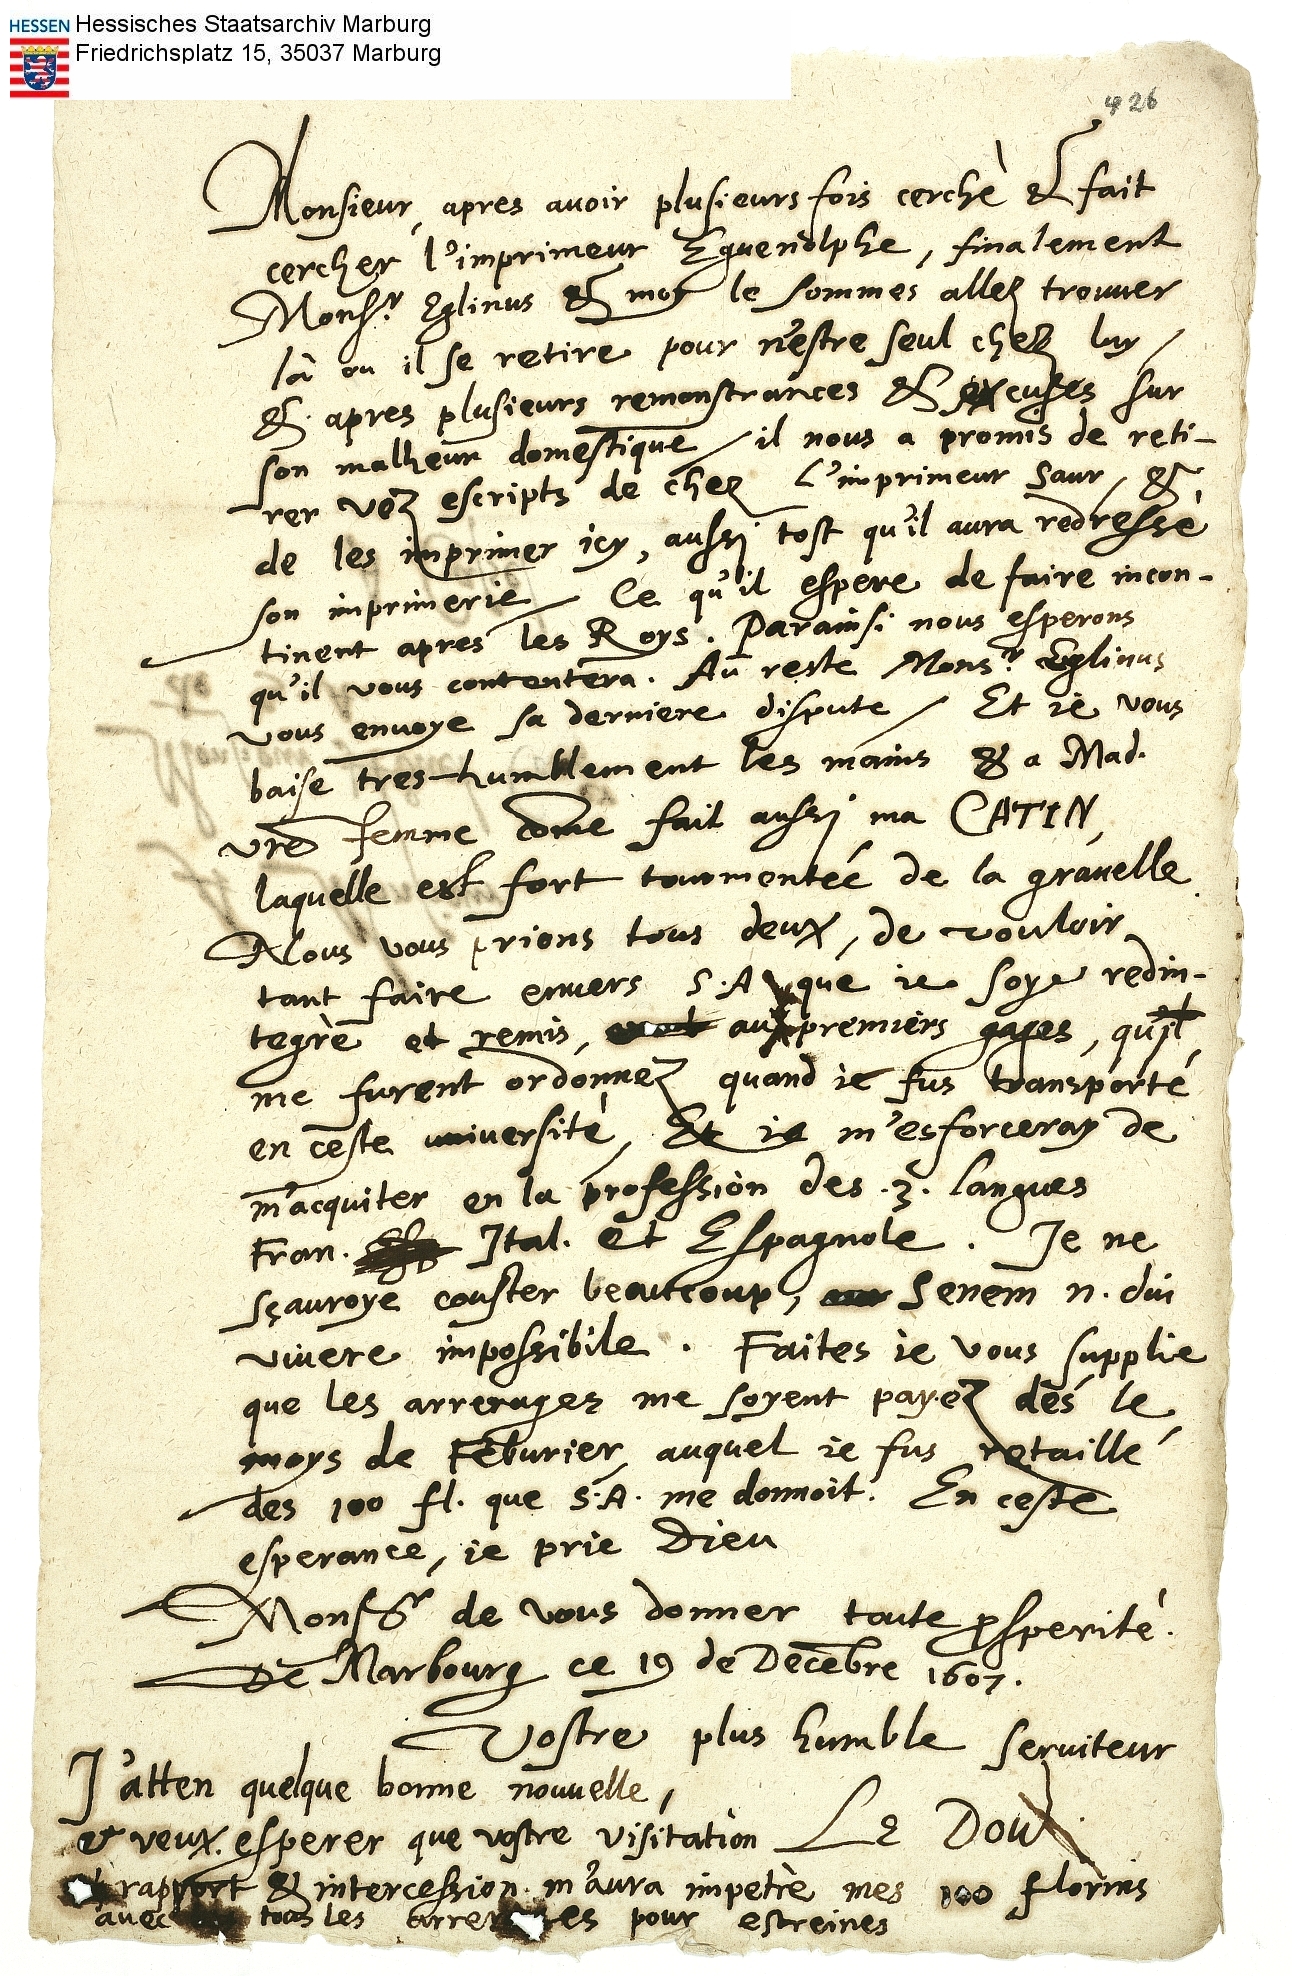 HESSEN Hessisches Staatsarchiv Marburg
Friedrichsplatz 15, 35037 Marburg
426
Monsieur, apres auoir plusieurs fois cerché & fait
cercher l'imprimeur Eguenolphe, finalement
Monsr. Eglinus & moy le sommes allez trouuer
là ou il se retire pour n'estre seul chez luy /
& apres plusieurs remonstrances & excuses sur
son malheur domestique / il nous a promis de reti-
rer voz escripts de chez l'imprimeur Saur, &
de les imprimer icy, aussi tost qu'il aura redressé
son imprimerie / Ce qu'il espere de faire incon-
tinent apres les Roys. Parainsi nous esperons
qu'il vous contentera. Au reste Monsr. Eglinus
vous enuoye sa derniere dispute / Et ie vous
baise tres-humblement les mains & a Mad.
vre femme come fait aussi ma CATIN,
laquelle est fort tourmentée de la grauelle.
Nous vous prions tous deux, de vouloir
tant faire enuers S.A que ie soye redin-
tegré et remis, aux premiers gages, qu'il
me furent ordonnez quand ie fus transporté
en ceste université, Et ie m'esforceray de
m'acquiter en la profession des .3. langues
Fran. Ital. et Espagnole. Je ne
sçauroye couster beaucoup, Senem n. diu
viuere impossibile. Faites ie vous supplie
que les arrerages me soyent payez dés le
moys de Feburier, auquel ie fus retaillé
des 100 fl. que S.A. me donnoit. En ceste
esperance, ie prie Dieu
Monsr de vous donner toute prosperité.
De Marbourg ce 19 de Decebre 1607.
Vostre plus humble seruiteur
J'atten quelque bonne nouuelle,
& veux esperer que vostre visitation Le Doux
rapport & intercession m'aura impetré mes 100 florins
auec tous les arrerages pour estreines